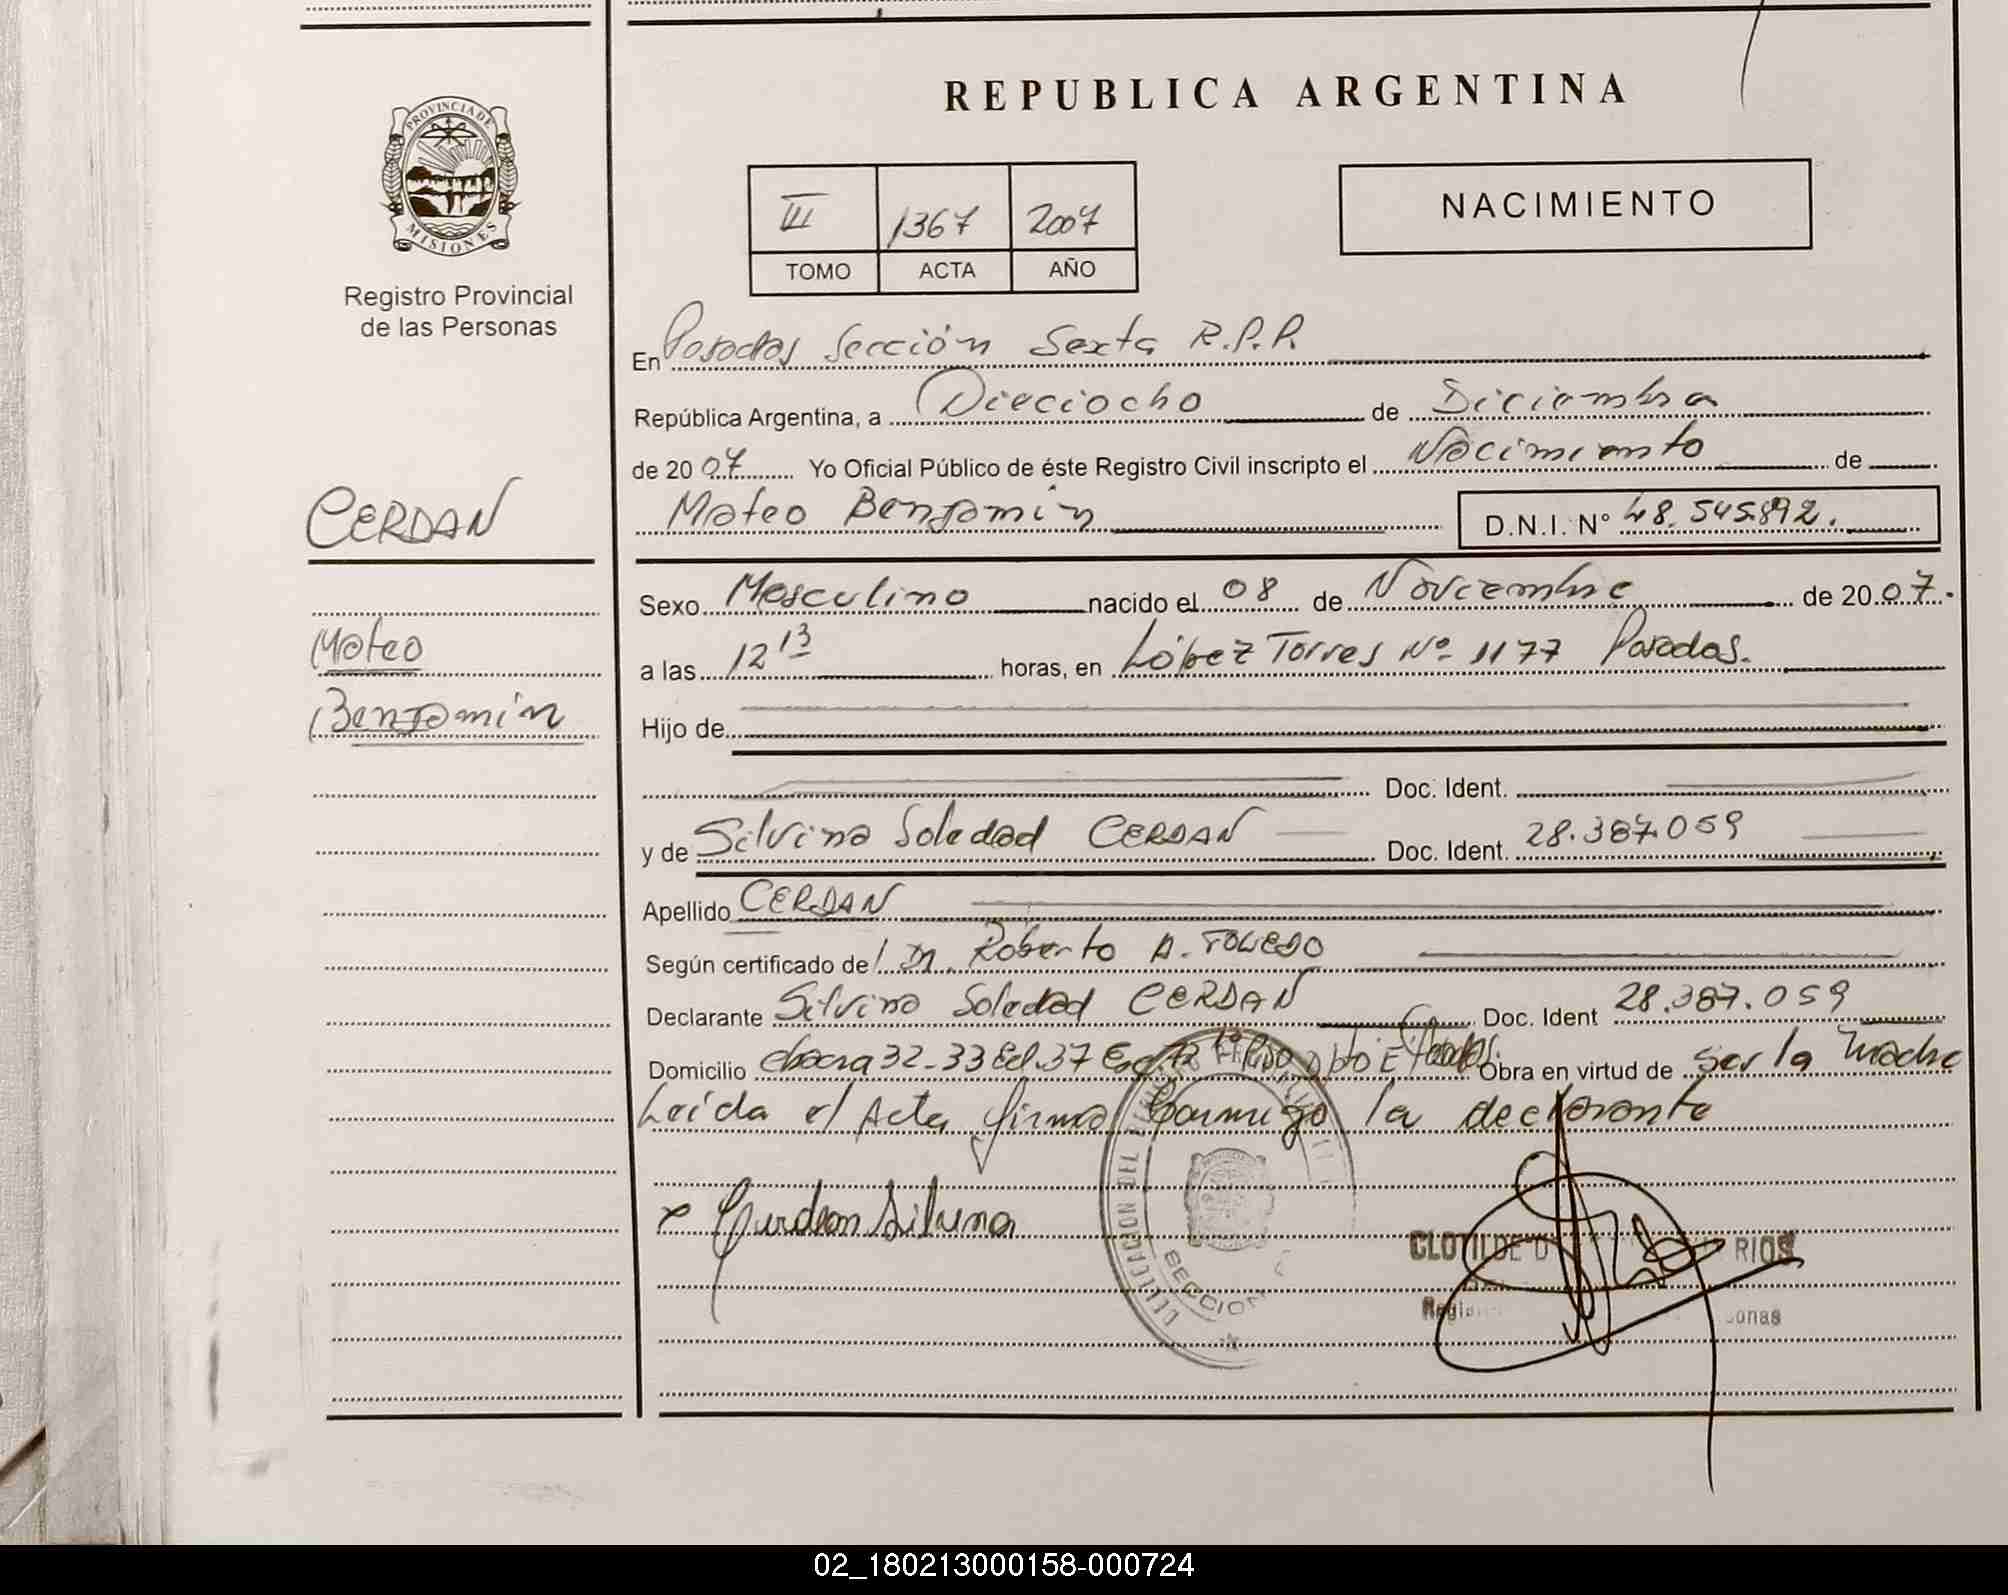 REPUBLICA ARGENTINA
PROVINCIA DE
MISIONES
Registro Provincial
de las Personas
III 1367 2007
TOMO ACTA AÑO
NACIMIENTO
En Posadas Sección Sexta R.P.P.
República Argentina, a Dieciocho de Diciembre
de 2007 Yo Oficial Público de éste Registro Civil inscripto el Nacimiento de
CERDAN
Mateo Benjamin D.N.I. N° 48.545.892.
Sexo Masculino nacido el 08 de Noviembre de 2007.
Mateo
a las 12 13 horas, en López Torres Nº 1177 Posadas.
Benjamin
Hijo de
Doc. Ident.
y de Silvina Soledad CERDAN Doc. Ident. 28.387.059
Apellido CERDAN
Según certificado de Roberto A. TOLEDO
Declarante Silvina Soledad CERDAN Doc. Ident 28.387.059
Domicilio chacra 32-33 Ed. 37 Esc. 1º Piso Dpto E Posadas. Obra en virtud de ser la Madre
Leída el Acta firma conmigo la declarante
x Cerdan Silvina
DELEGACION DEL
SECCION
CLOTILDE RIOS